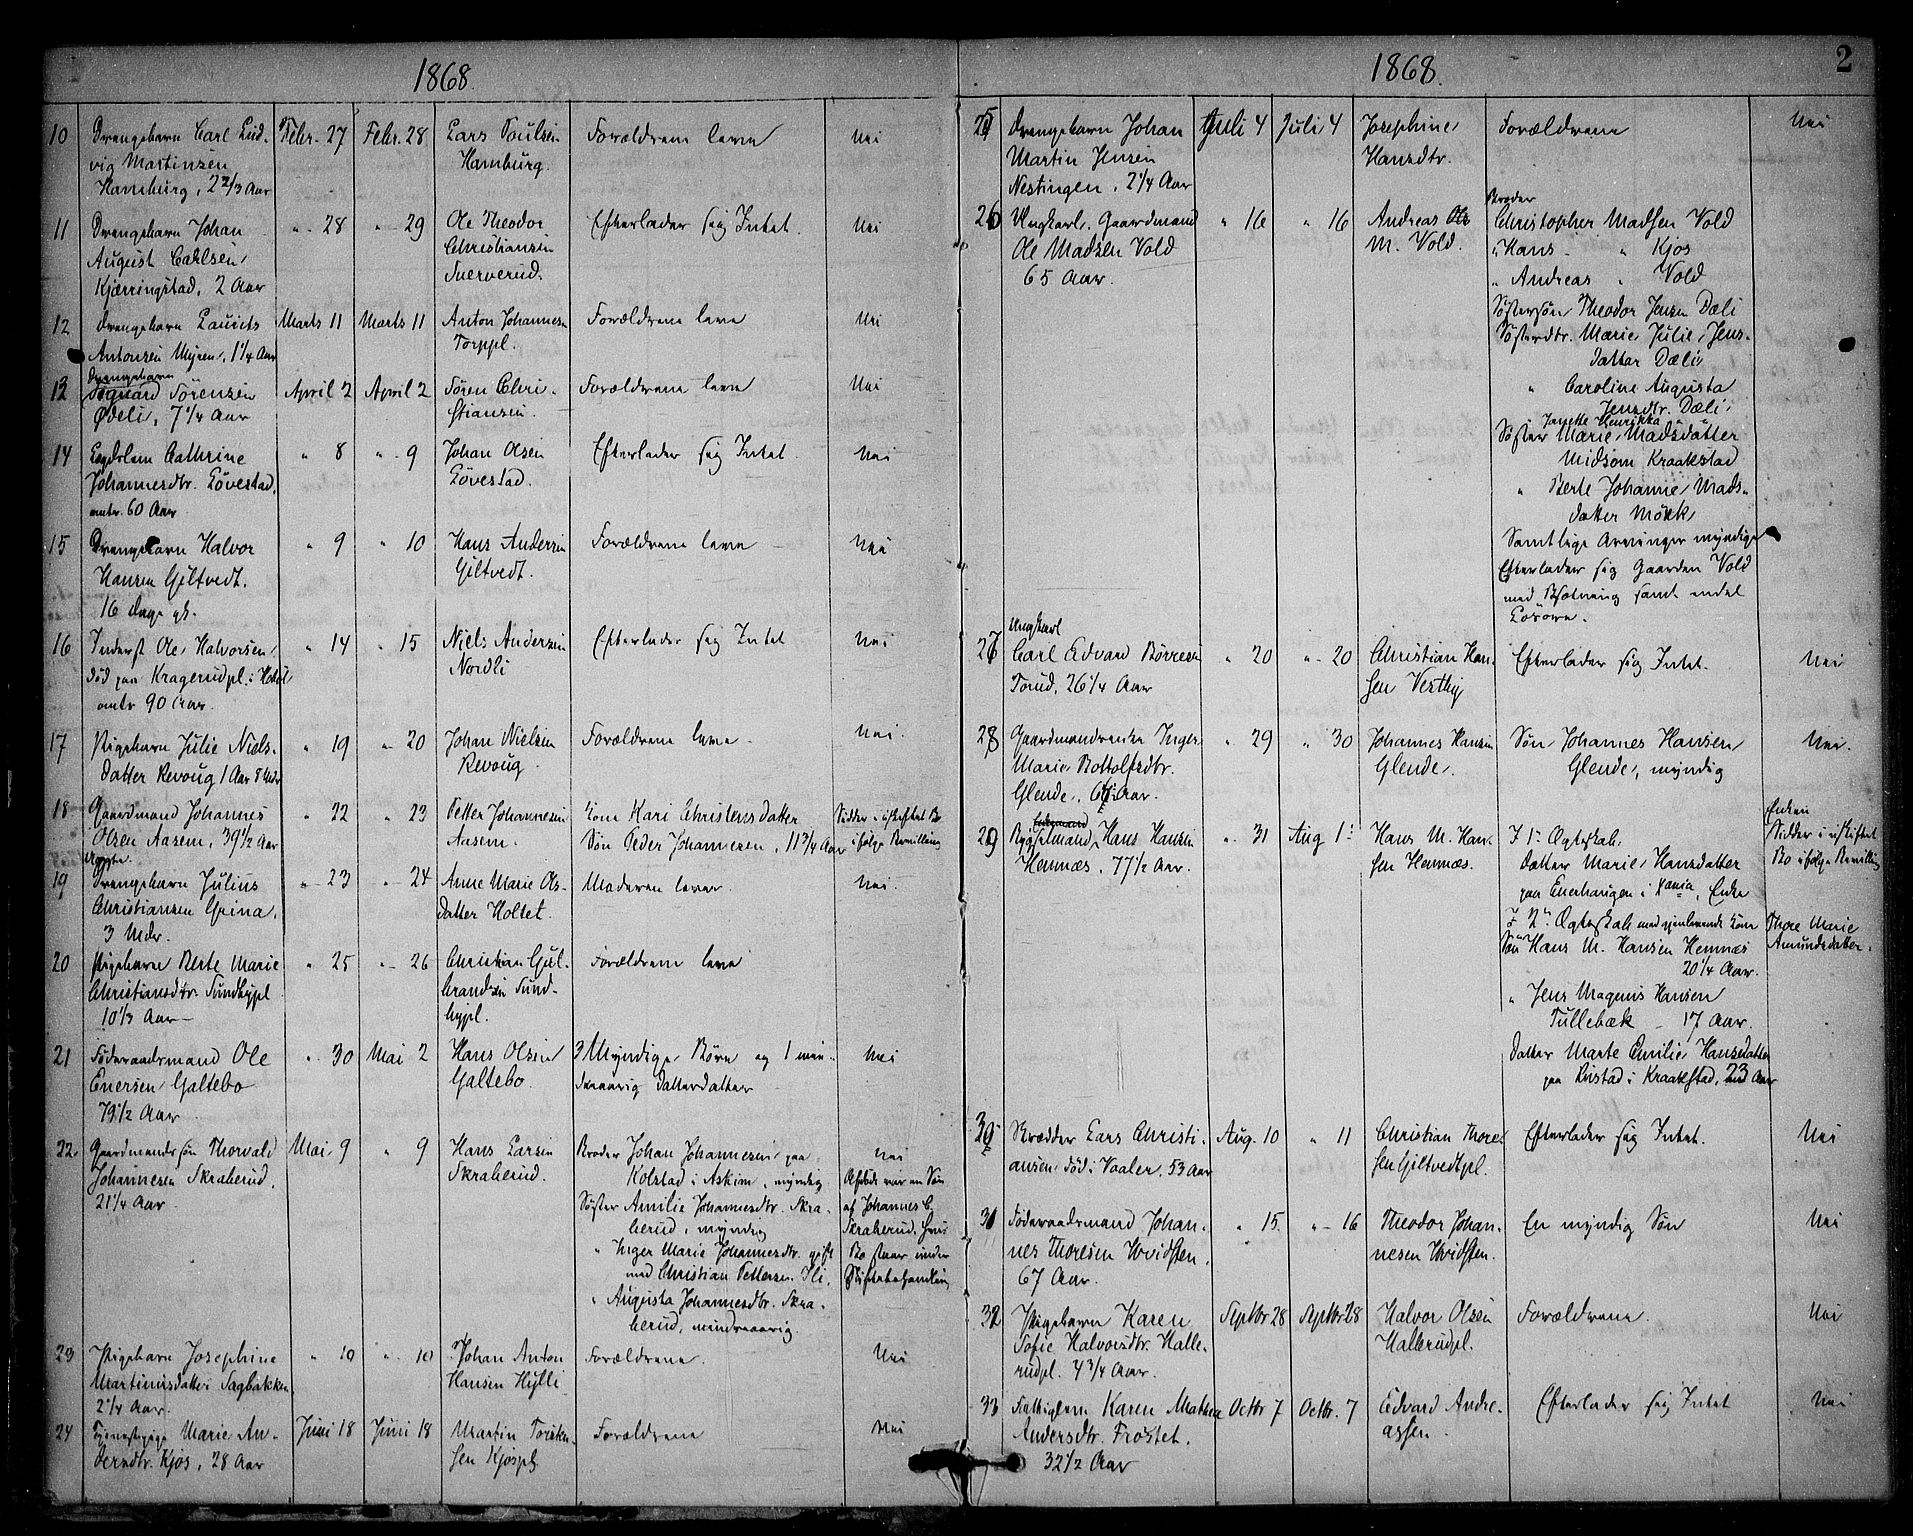 1868.
10 Drengebarn Carl Lud- Febr. 27 Febr. 28 Lars Poulsen Forældrene leve Nei
vig Martinsen Hamburg.
Hamburg, 2 2/3 Aar
11 Drengebarn Johan " 28 " 29 Ole Theodor Efterlader sig Intet. Nei
August Carlsen Christiansen
Kjærringstad, 2 Aar Snerverud.
12 Drengebarn Laurits Marts 11 Marts 11 Anton Johannesen Forældrene leve Nei
Antonsen Myren, 1 1/4 Aar Torppl.
Drengebarn
13 Sigvard Sörensen April 2 April 2 Sören Chri- Forældrene leve Nei
Ödeli, 7 1/4 Aar stiansen.
14 Lægdslem Cathrine " 8 " 9 Johan Olsen Efterlader sig Intet Nei
Johannesdtr. Lövestad, Lövestad.
omtr. 60 Aar
15 Drengebarn Halvor " 9 " 10 Hans Andersen Forældrene leve Nei
Hansen Giltvedt. Giltvedt.
16 Dage gl.
16 Inderst Ole Halvorsen, " 14 " 15 Niels Andersen Efterlader sig Intet Nei
död paa Kragerudpl. i Hobøl Nordli
omtr 90 Aar.
17 Pigebarn Julie Niels- " 19 " 20 Johan Nielsen Forældrene leve Nei.
datter Revoug 1 Aar 8 Mdr Revoug.
18 Gaardmand Johannes " 22 " 23 Petter Johannesen Kone Kari Christensdatter Sidder i uskiftet Bo
Olsen Aasem, 39 1/2 Aar Aasem. Sön Peder Johannesen, 11 3/4 Aar ifølge Bevilling
19 Drengebarn Julius " 23 " 24 Anne Marie Ols- Moderen lever. Nei.
Christiansen Grina, datter Holtet.
3 Mdr.
20 Pigebarn Berte Marie " 25 " 26 Christian Gul- Forældrene leve
Christiansdtr. Sundbypl brandsen Sund-
10 1/3 Aar bypl.
21 Föderaadsmand Ole " 30 Mai 2 Hans Olsen 3 Myndige Børn og 1 min- Nei
Enersen Galtebo Galtebo dreaarig Datterdatter
79 1/2 Aar
22 Gaardmandssön Thorvald Mai 9 " 9 Hans Larsen Broder Johan Johannesen paa Nei
Johannesen Skraherud, Skraherud. Kolstad i Askim, myndig Afdöde var en Sön
21 1/4 Aar Søster Amilie Johannesdtr. Skra- af Johannes C.
herud, myndig Skraherud, hvis
" Inger Marie Johannesdtr. gift Bo staar under
med Christian Pettersen Ili, Skiftebehandling
" Augusta Johannesdtr. Skra-
herud, mindreaarig.
23 Pigebarn Josephine " 10 " 10 Johan Anton Forældrene. Nei
Martinusdatter Sagbakken Hansen Hylli
2 1/4 Aar.
24 Tjenestepige Marie An- Juni 18 Juni 18 Martin Torsten- Forældrene Nei
dersdtr. Kjos, 28 Aar sen Kjospl
1868. 2
25 Drengebarn Johan Juli 4 Juli 4 Josephine Forældrene Nei
Martin Jensen Hansdtr.
Nestingen, 2 1/4 Aar
Broder
26 Ungkarl, Gaardmand " 16 " 16 Andreas Christopher Madsen Vold
Ole Madsen Vold M. Vold. " Hans " Kjos
65 Aar. " Andreas " Vold
Søstersön Theodor Jensen Dæli
Søsterdtr. Marie Julie Jens-
datter Dæli
" Caroline Augusta
Jensdtr. Dæli
Janette Henrikka
Søster Marie Madsdatter
Midsom Kraakstad
" Berte Johanne Mads-
datter Mörk
Samtlige Arvinger myndige
Efterlader sig Gaarden Vold
med Besætning samt endel
Lösöre.
Ungkarl
27 Carl Edvard Börresen " 20 " 20 Christian Han- Efterlader sig Intet. Nei
Torud, 26 1/4 Aar sen Vestby
28 Gaardmandsenke Inger " 29 " 30 Johannes Hansen Sön Johannes Hansen Nei.
Marie Bottolfsdtr. Glende. Glende, myndig
Glende, Aar.
29 Bygselmand Hans Hansen " 31 Aug 1. Hans M. Han- I 1. Ægteskab. Enken
Hemnæs, 77 1/2 Aar. sen Hemnæs. Datter Marie Hansdatter Sidder i uskiftet
paa Enerhaugen i Xania, Enke Bo ifølge Bevilling
I 2. Ægteskab med gjenlevende Kone Thore Marie
Sön Hans M. Hansen Hemnæs Amundsdatter.
20 1/4 Aar.
" Jens Magnus Hansen
Tullebæk 17 Aar.
Datter Marte Emilie Hansdatter
paa Rustad i Kraakstad, 23 Aar
30 Skrædder Lars Christi- Aug. 10 " 11 Christian Thore- Efterlader sig Intet. Nei
ansen, död i Vaaler, 53 Aar sen Giltvedtpl.
31 Föderaadsmand Johan- " 15. " 16 Theodor Johan- En myndig Sön Nei
nes Thoresen Hvidsten, nesen Hvidsten.
67 Aar.
32 Pigebarn Karen Septbr 28 Septbr 28 Halvor Olsen Forældrene. Nei
Sofie Halvorsdtr. Halle- Hallerudpl.
rudpl. 4 3/4 Aar.
33 Fattiglem Karen Mathea Octbr 7 Octbr. 7 Edvard Andre- Efterlader sig Intet Nei
Andersdtr. Frostet. assen.
32 1/2 Aar